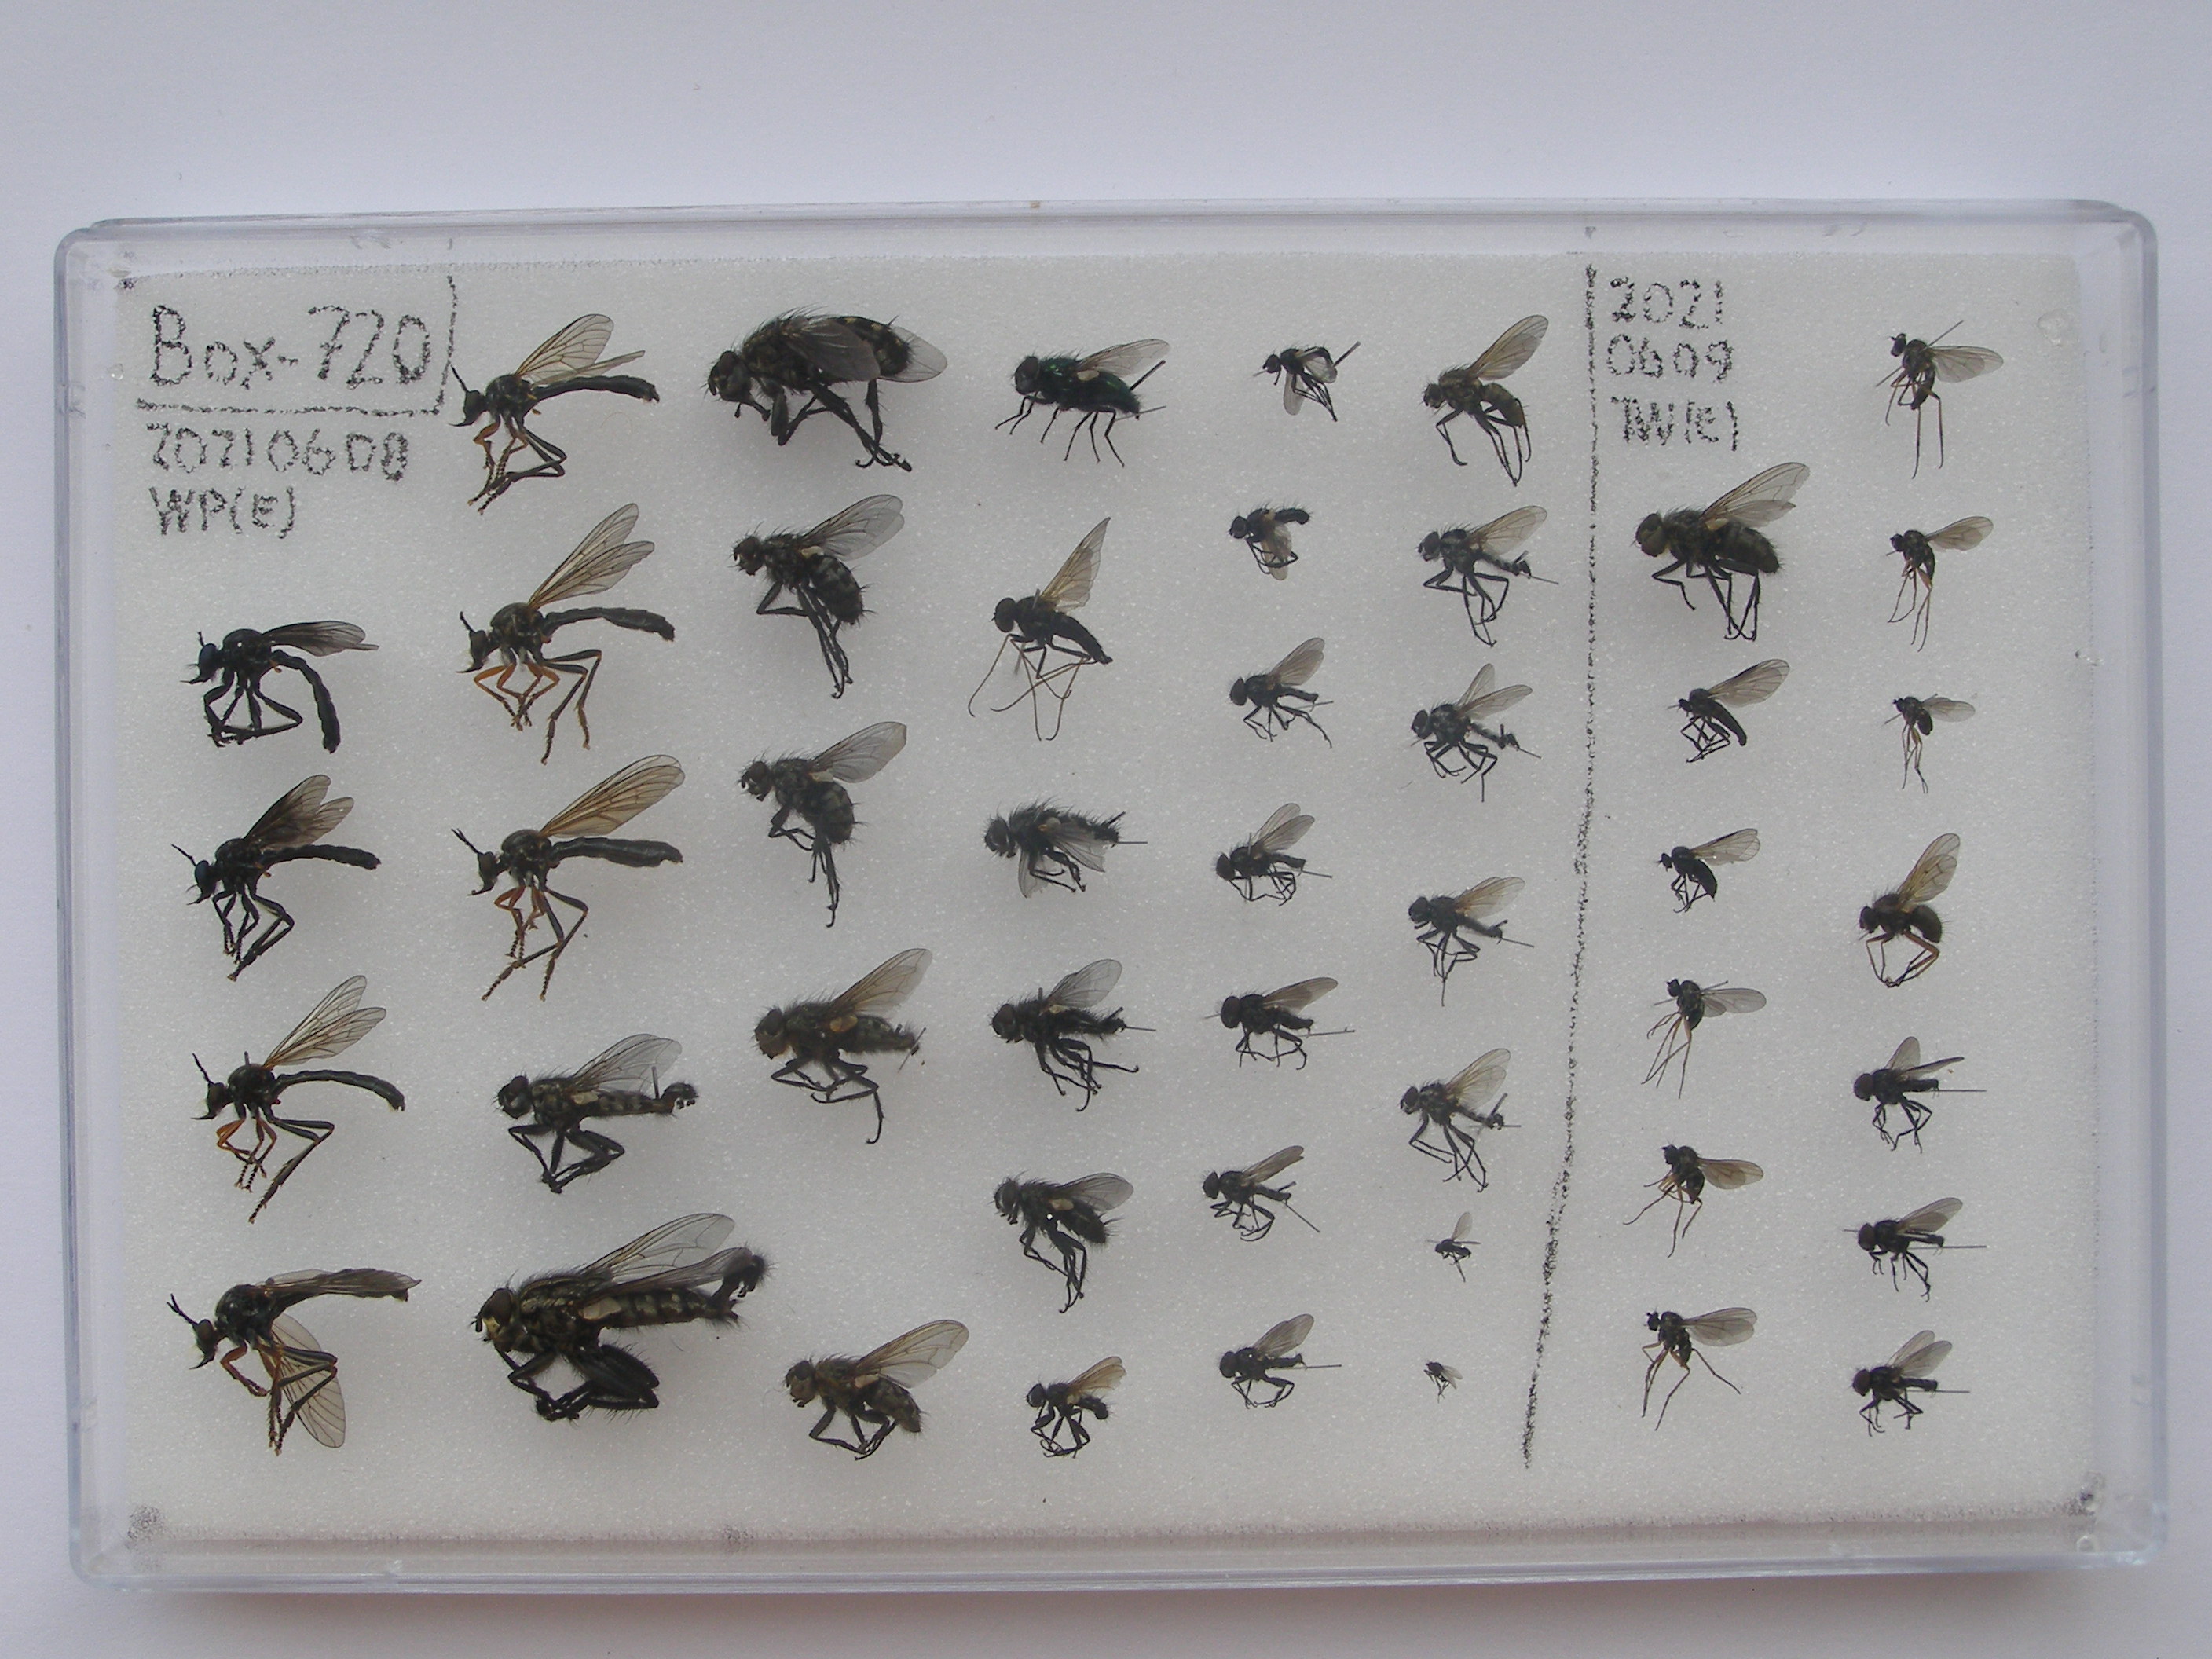 Box-720
20210608
WP(E)
2021
0609
TW(E)